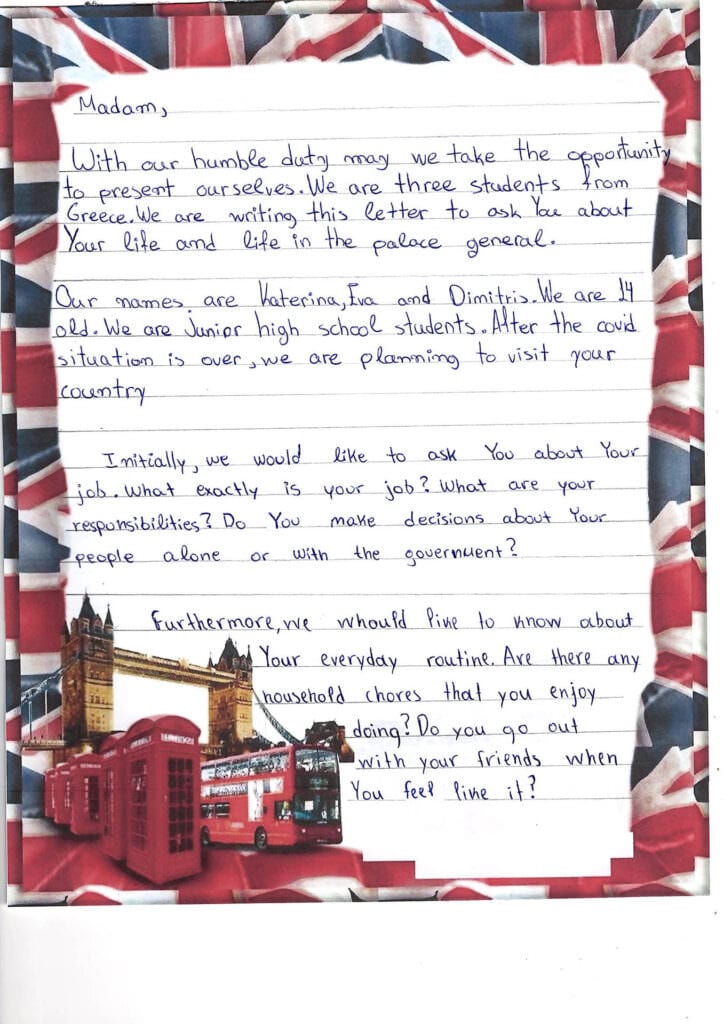 Madam,
With our humble duty may we take the opportunity
to present ourselves. We are three students from
Greece. We are writing this letter to ask You about
Your life and life in the palace general.
Our names are Katerina, Eva and Dimitris. We are 14
old. We are Junior high school students. After the covid
situation is over, we are planning to visit your
country
Initially, we would like to ask You about Your
job. What exactly is your job? What are your
responsibilities? Do You make decisions about Your
people alone or with the government?
Furthermore, we whould like to know about
Your everyday routine. Are there any
household chores that you enjoy
doing? Do you go out
with your friends when
You feel like it?